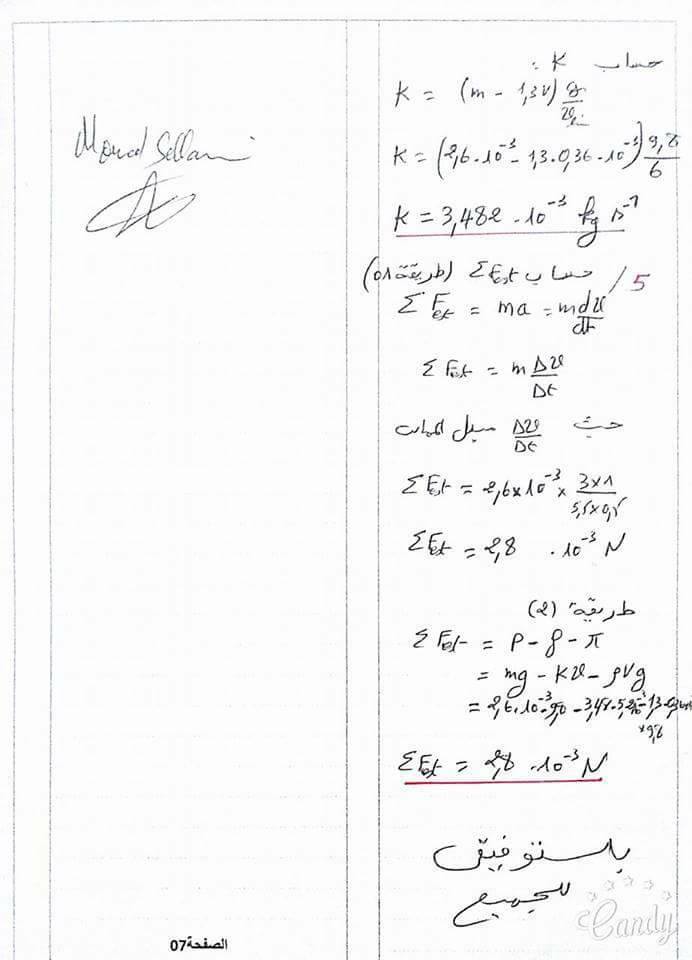 Morad Sellami
حساب K :
K = (m - 1,3V) g/v_lim
K = (2,6·10⁻³ - 1,3·0,36·10⁻³) 9,8/6
K = 3,482·10⁻³ kg s⁻¹
5/ حساب ΣF_ext (طريقة 01)
ΣF_ext = ma = m dv/dt
ΣF_ext = m Δv/Δt
حيث Δv/Δt ميل المماس
ΣF_ext = 2,6×10⁻³ × 3×1/5,5×0,5
ΣF_ext = 2,8 · 10⁻³ N
طريقة (2)
ΣF_ext = P - f - π
= mg - Kv - ρVg
= 2,6·10⁻³·9,8 - 3,48·5,2
×9,8
ΣF_ext = 2,8 · 10⁻³ N
بالتوفيق
للجميع
الصفحة07
Candy